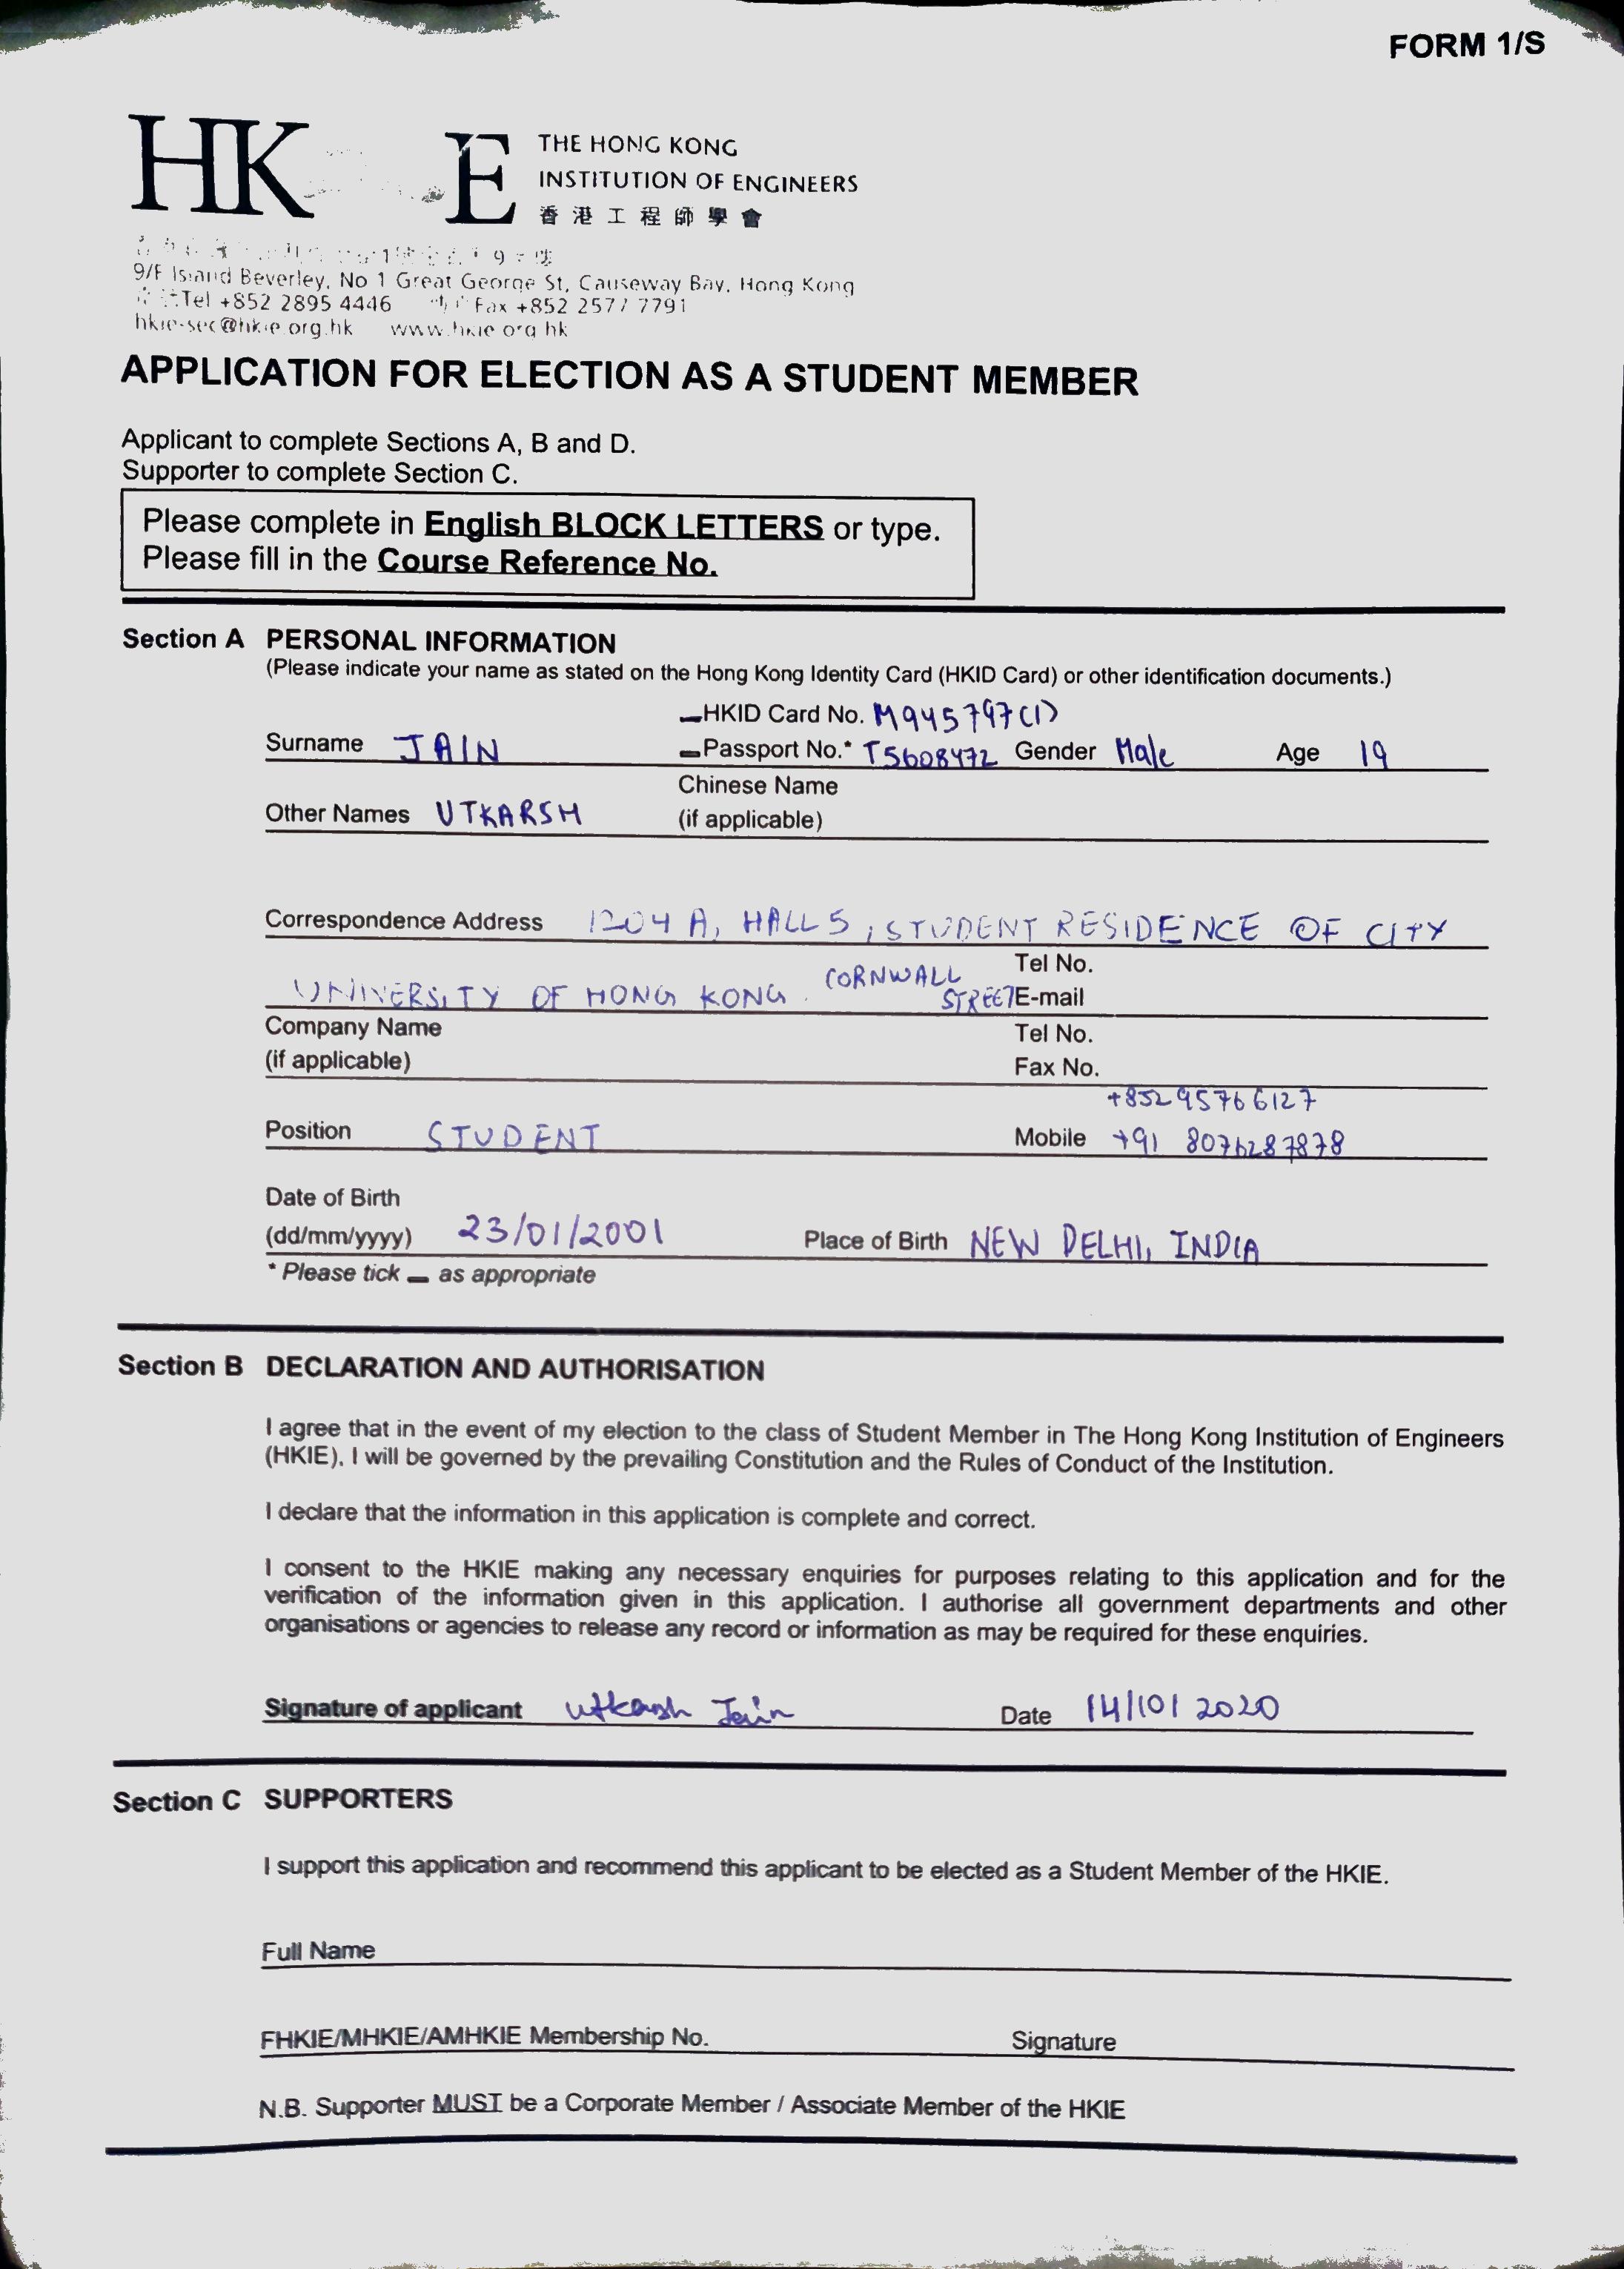 FORM 1/S
HK E
THE HONG KONG
INSTITUTION OF ENGINEERS
香港工程師學會
9/F Island Beverley, No 1 Great George St, Causeway Bay, Hong Kong
Tel +852 2895 4446 Fax +852 2577 7791
hkie-sec@hkie.org.hk www.hkie.org.hk
APPLICATION FOR ELECTION AS A STUDENT MEMBER
Applicant to complete Sections A, B and D.
Supporter to complete Section C.
Please complete in English BLOCK LETTERS or type.
Please fill in the Course Reference No.
Section A PERSONAL INFORMATION
(Please indicate your name as stated on the Hong Kong Identity Card (HKID Card) or other identification documents.)
HKID Card No. M945797(1)
Surname JAIN Passport No.* T5608472 Gender Male Age 19
Chinese Name
Other Names UTKARSH (if applicable)
Correspondence Address 1204 A, HALL 5, STUDENT RESIDENCE OF CITY
Tel No.
UNIVERSITY OF HONG KONG. CORNWALL STREET E-mail
Company Name Tel No.
(if applicable) Fax No.
+852 95766127
Position STUDENT Mobile +91 8076287878
Date of Birth
(dd/mm/yyyy) 23/01/2001 Place of Birth NEW DELHI, INDIA
* Please tick as appropriate
Section B DECLARATION AND AUTHORISATION
I agree that in the event of my election to the class of Student Member in The Hong Kong Institution of Engineers
(HKIE), I will be governed by the prevailing Constitution and the Rules of Conduct of the Institution.
I declare that the information in this application is complete and correct.
I consent to the HKIE making any necessary enquiries for purposes relating to this application and for the
verification of the information given in this application. I authorise all government departments and other
organisations or agencies to release any record or information as may be required for these enquiries.
Signature of applicant Utkarsh Jain Date 14/10/2020
Section C SUPPORTERS
I support this application and recommend this applicant to be elected as a Student Member of the HKIE.
Full Name
FHKIE/MHKIE/AMHKIE Membership No. Signature
N.B. Supporter MUST be a Corporate Member / Associate Member of the HKIE